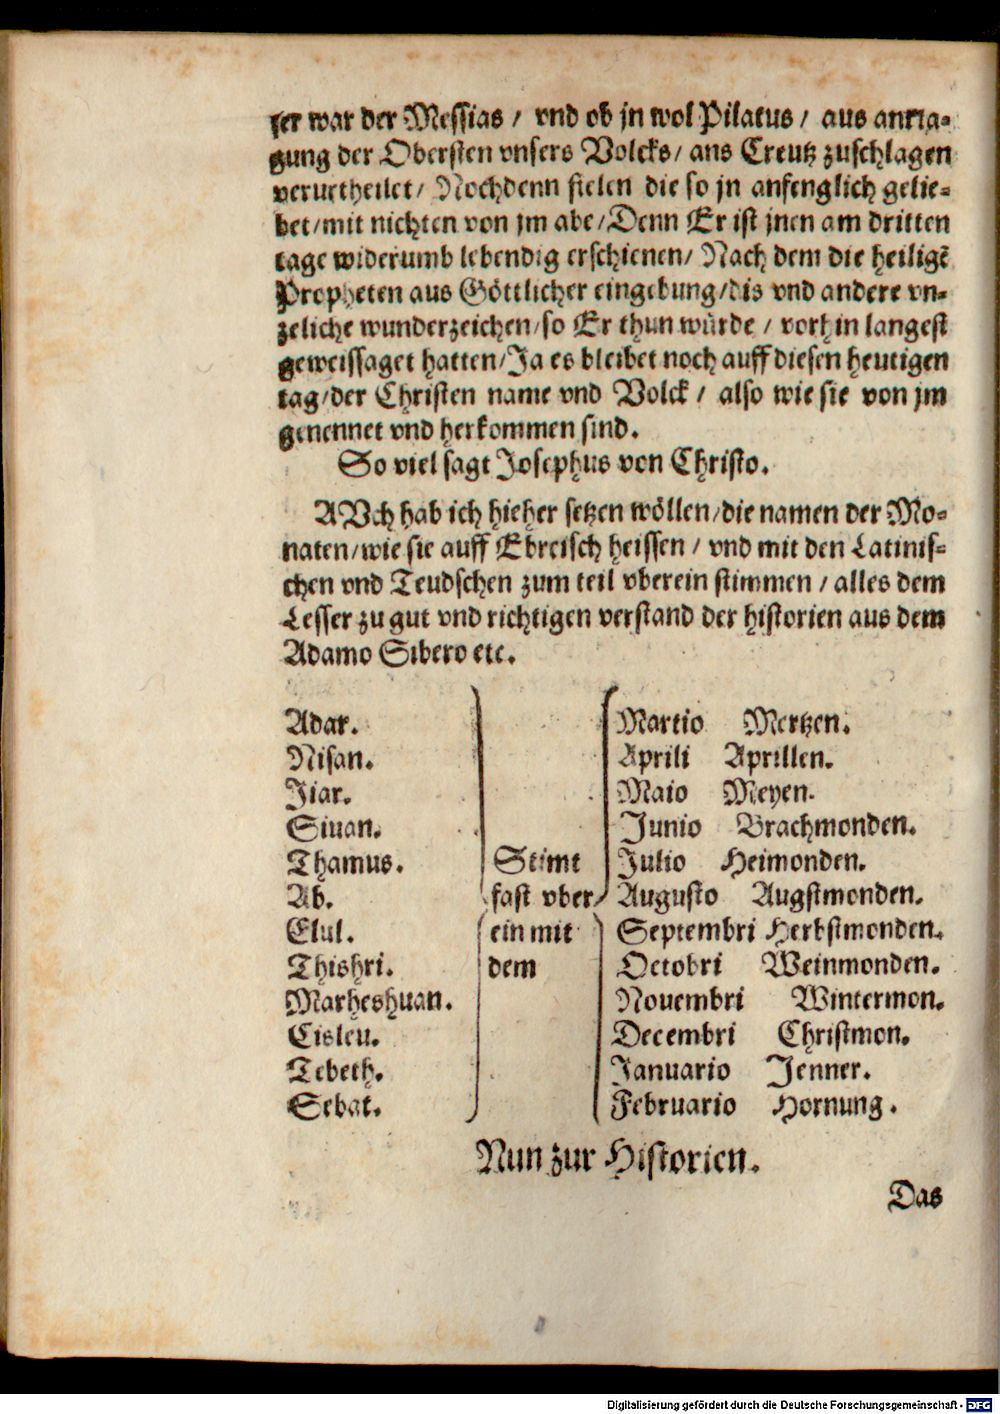 ser war der Messias / vnd ob jn wol Pilatus / aus ankla-
gung der Obersten vnsers Volcks / ans Creutz zuschlagen
verurtheilet / Nochdenn fielen die so jn anfenglich gelie-
bet / mit nichten von jm abe / Denn Er ist jnen am dritten
tage widerumb lebendig erschienen / Nach dem die heiligē
Propheten aus Göttlicher eingebung / dis vnd andere vn-
zeliche wunderzeichen / so Er thun würde / vorhin langest
geweissaget hatten / Ja es bleibet noch auff diesen heutigen
tag / der Christen name vnd Volck / also wie sie von jm
genennet vnd herkommen sind.
So viel sagt Josephus von Christo.
AVch hab ich hieher setzen wöllen / die namen der Mo-
naten / wie sie auff Ebreisch heissen / vnd mit den Latinis-
chen vnd Teudschen zum teil vberein stimmen / alles dem
Lesser zu gut vnd richtigen verstand der historien aus dem
Adamo Sibero etc.
Adar. Martio Mertzen.
Nisan. Aprili Aprillen.
Jiar. Maio Meyen.
Siuan. Junio Brachmonden.
Thamus. Stimt Julio Heimonden.
Ab. fast vber Augusto Augstmonden.
Elul. ein mit Septembri Herbstmonden.
Thishri. dem Octobri Weinmonden.
Marheshuan. Nouembri Wintermon.
Cisleu. Decembri Christmon.
Tebeth. Januario Jenner.
Sebat. Februario Hornung.
Nun zur Historien.
Das
Digitalisierung gefördert durch die Deutsche Forschungsgemeinschaft - DFG